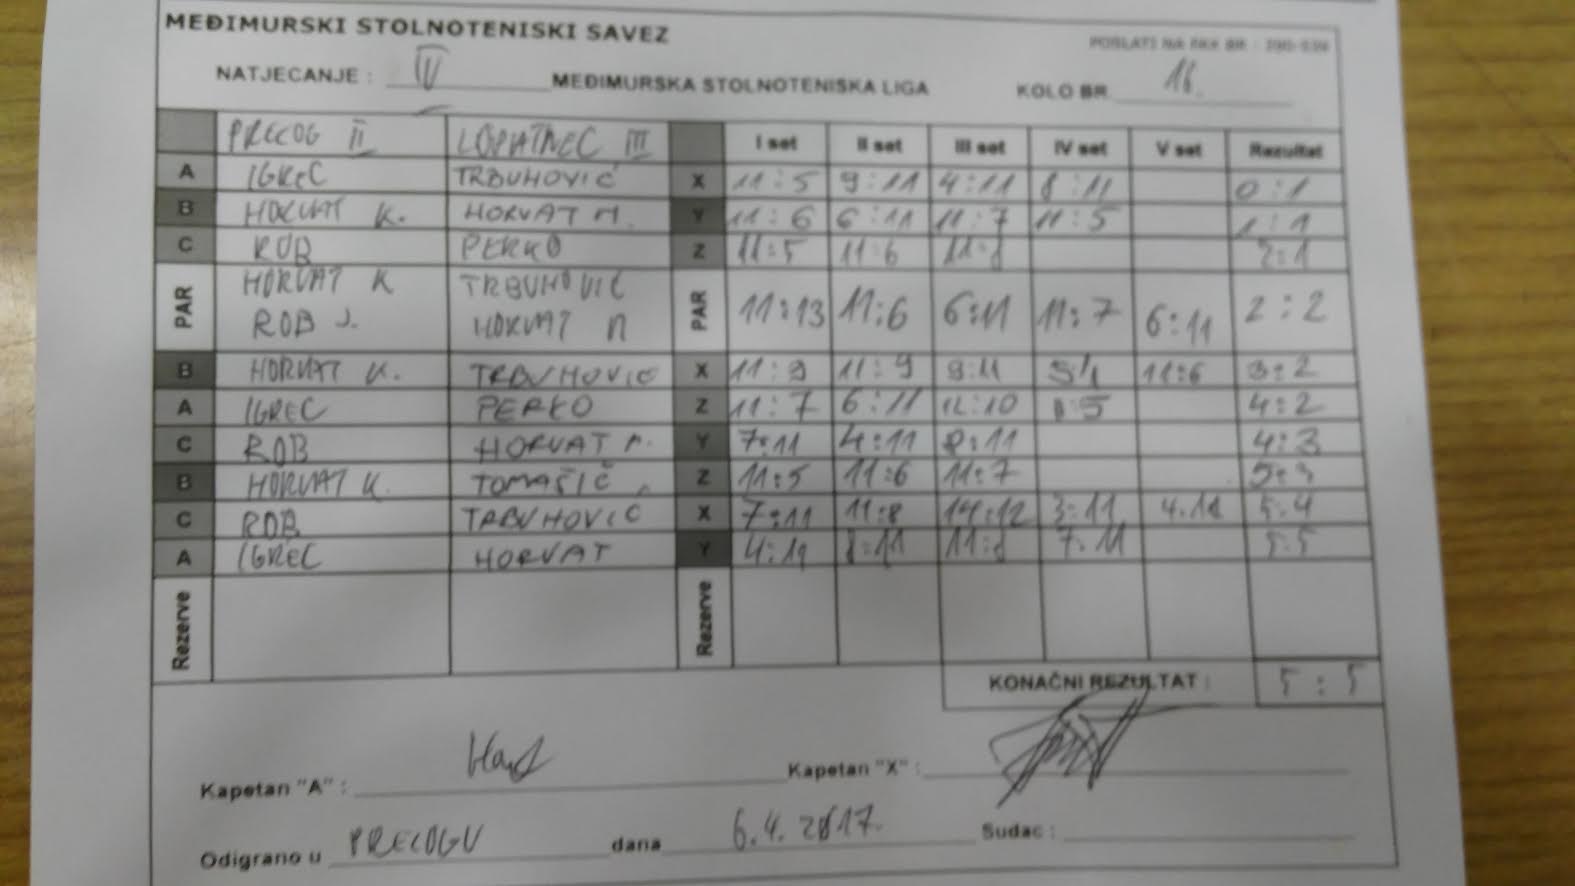 MEĐIMURSKI STOLNOTENISKI SAVEZ
POSLATI NA FAX BR :
NATJECANJE : IV MEĐIMURSKA STOLNOTENISKA LIGA KOLO BR. 16.
PRELOG II LOPATINEC III I set II set III set IV set V set Rezultat
A IGREC TRBUHOVIĆ X 11:5 9:11 4:11 8:11 0:1
B HORVAT K. HORVAT M. Y 11:6 6:11 11:7 11:5 1:1
C ROB PERKO Z 11:5 11:6 2:1
PAR HORVAT K TRBUHOVIĆ PAR 11:13 11:6 6:11 11:7 6:11 2:2
ROB J. HORVAT M
B HORVAT K. TRBUHOVIĆ X 11:9 11:9 9:11 11:6 3:2
A IGREC PERKO Z 11:7 6:11 12:10 4:2
C ROB HORVAT M. Y 7:11 4:11 8:11 4:3
B HORVAT K. TOMAŠIĆ Z 11:5 11:6 11:7 5:3
C ROB TRBUHOVIĆ X 7:11 11:8 14:12 3:11 4:11 5:4
A IGREC HORVAT Y 4:11 8:11 7:11 5:5
Rezerve Rezerve
KONAČNI REZULTAT : 5:5
Kapetan "A" : Kapetan "X" :
Odigrano u PRELOGU dana 6.4.2017. Sudac :